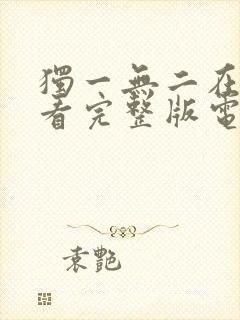 獨一無二在
看完整版電
袁艷